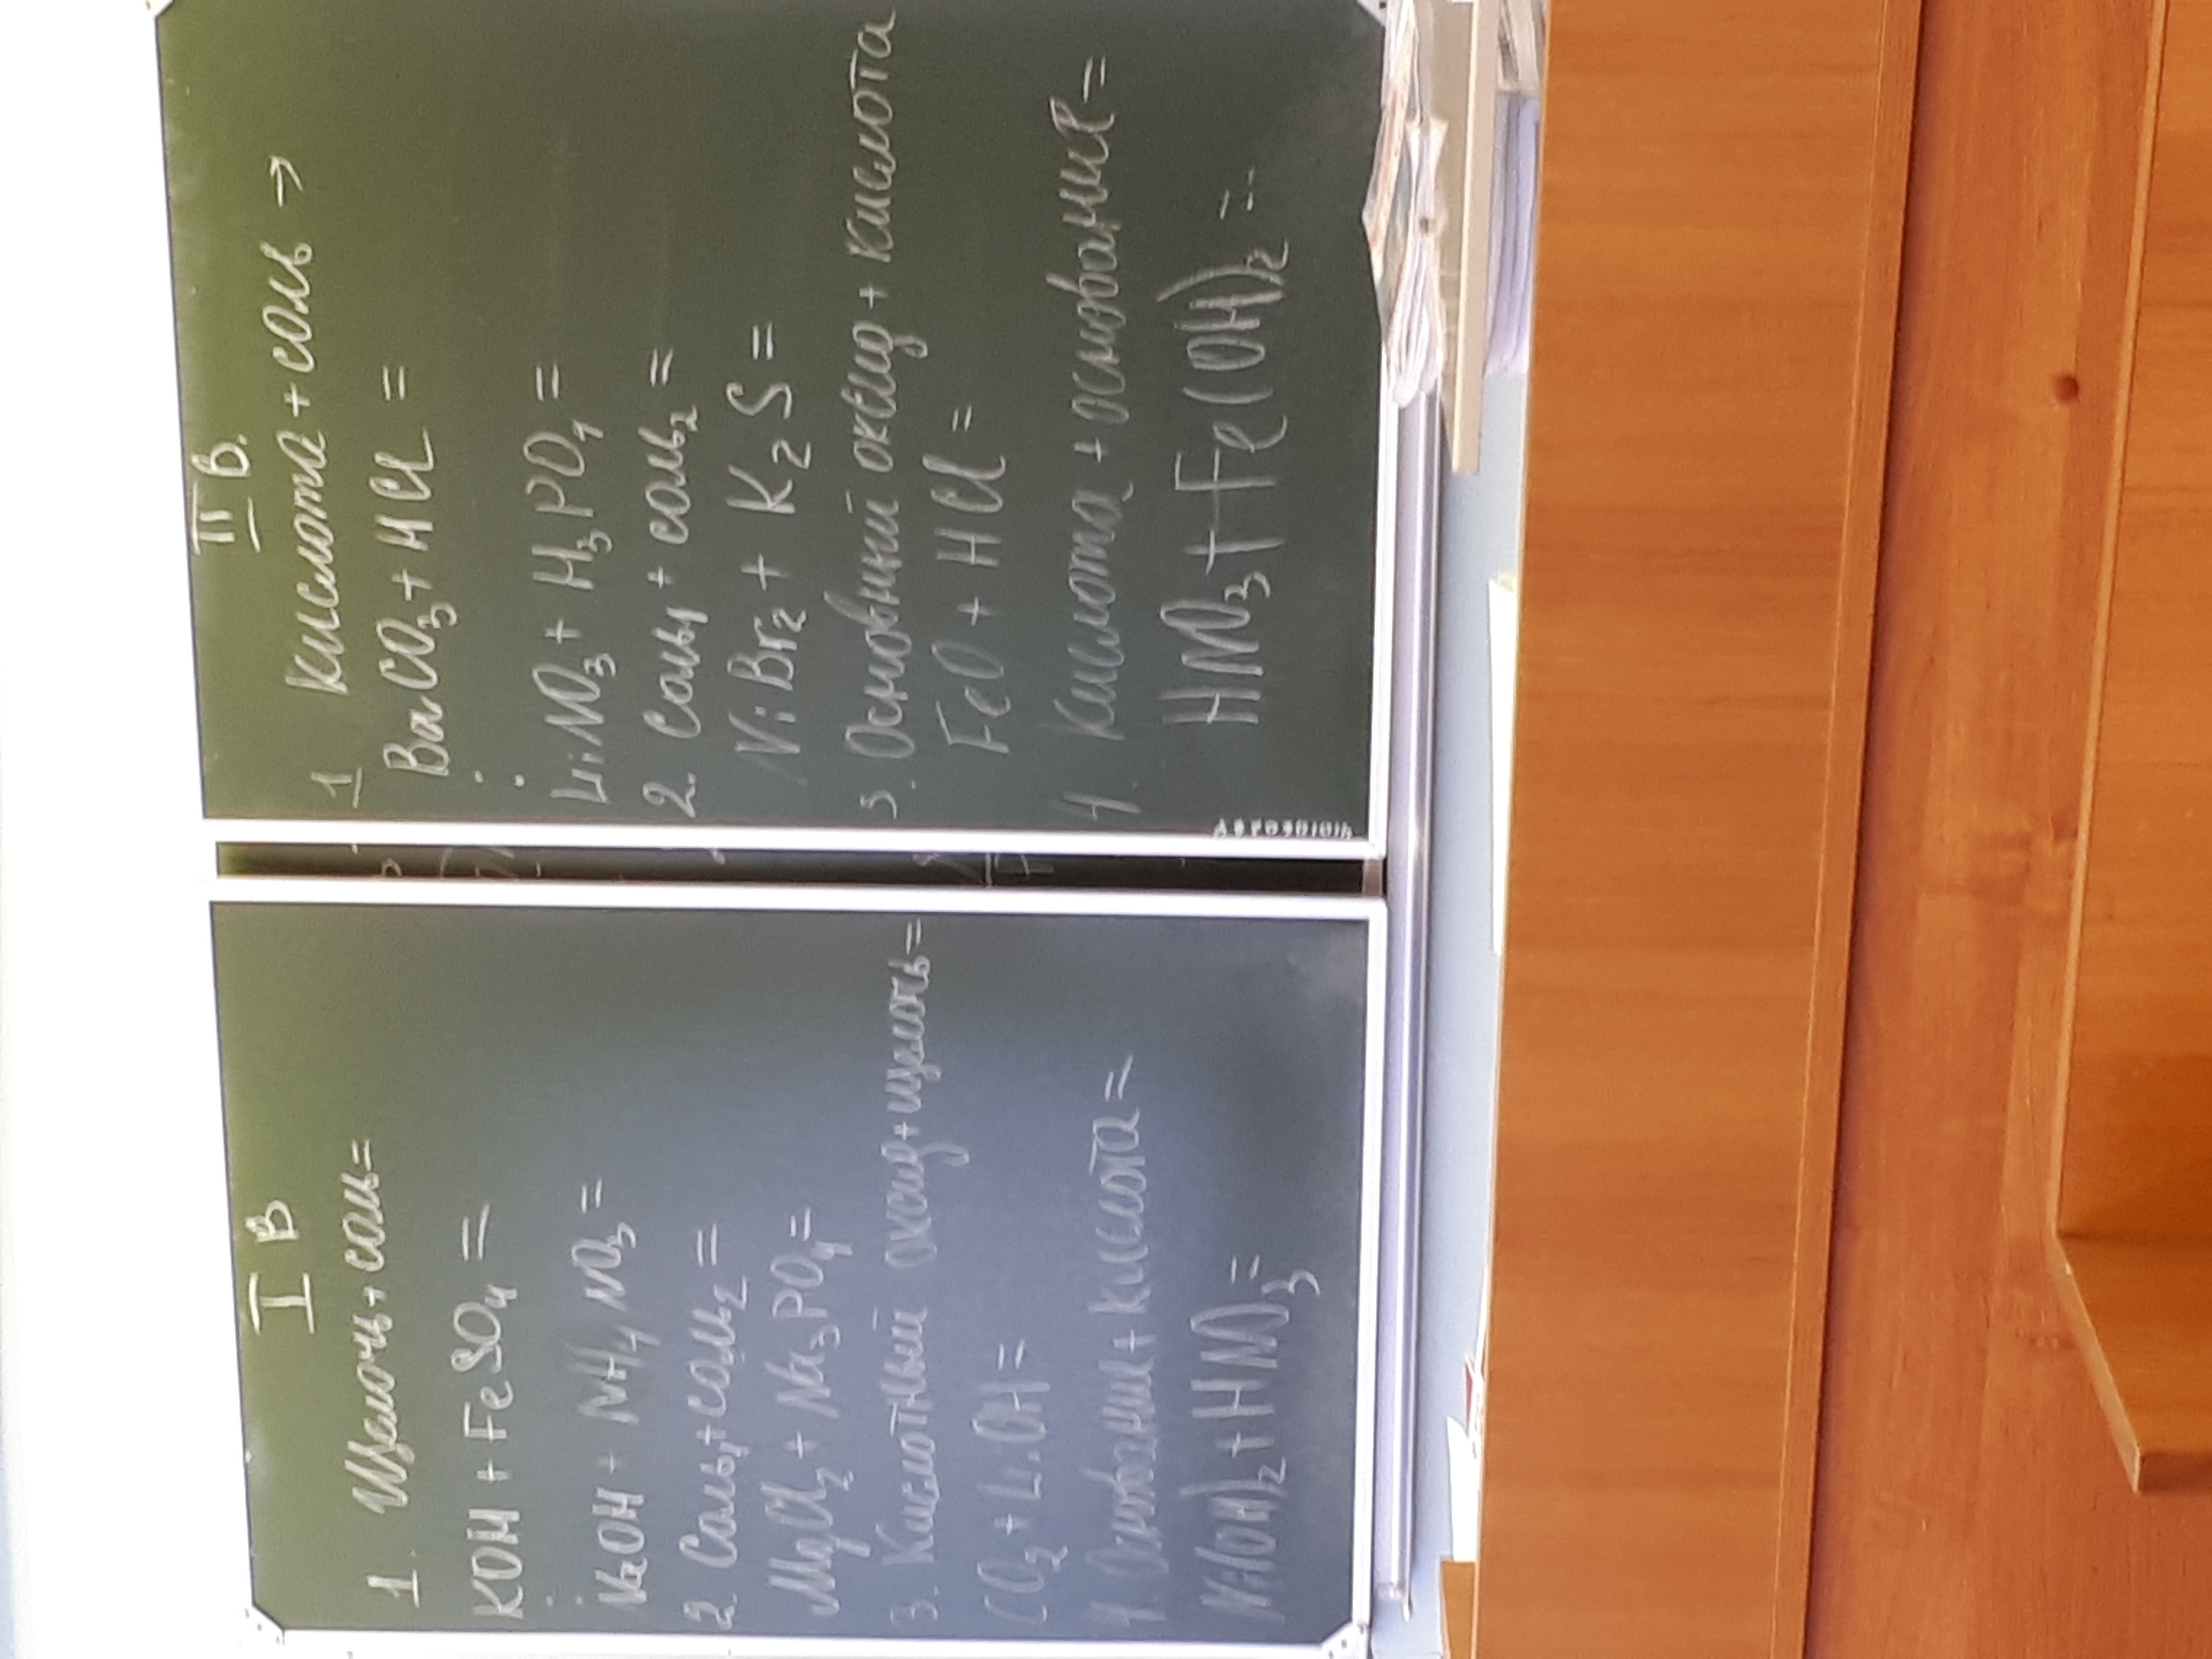 I В
1. Щелочь+соль=
KOH + FeSO4 =
NaOH + NH4NO3 =
2. Соль1+соль2=
MgCl2 + Na3PO4=
3. Кислотный оксид+щелочь=
CO2 + LiOH=
4. Основание+кислота=
Ni(OH)2+HNO3=
II В.
1 Кислота+соль →
BaCO3+HCl =
LiNO3+ H3PO4 =
2. Соль1 + соль2 =
NiBr2 + K2S =
3. Основный оксид + кислота
FeO + HCl =
4. Кислота + основание =
HNO3+Fe(OH)2 =